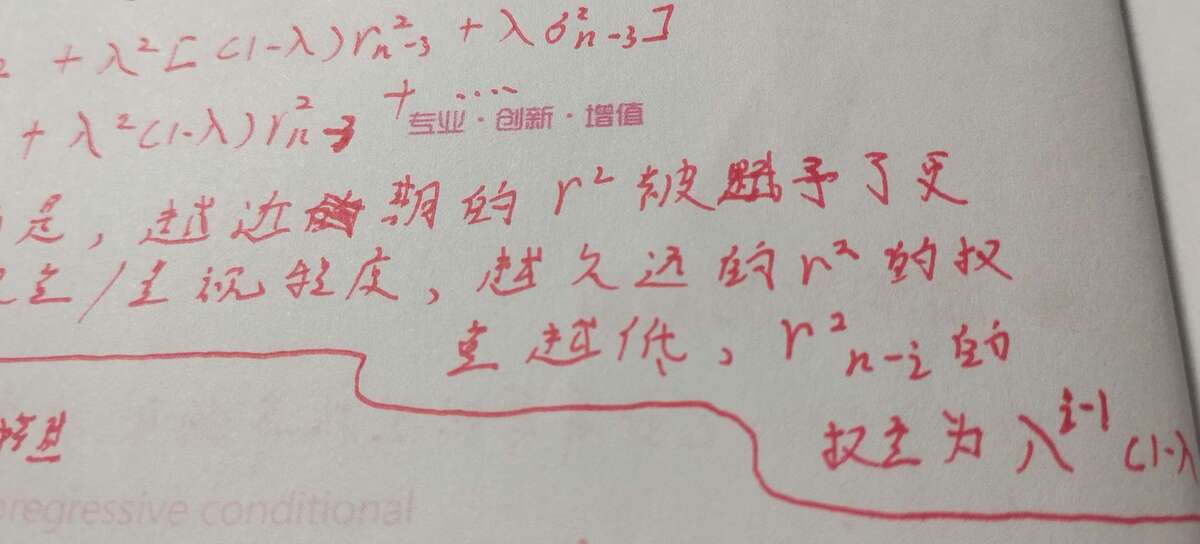 + λ²[(1-λ)r²ₙ₋₃ + λσ²ₙ₋₃]
+ λ²(1-λ)r²ₙ₋₃ + ....
专业·创新·增值
是,越近期的r²被赋予了更
/重视程度,越久远的r²的权
重越低,r²ₙ₋ᵢ的
权重为λⁱ⁻¹(1-λ
regressive conditional